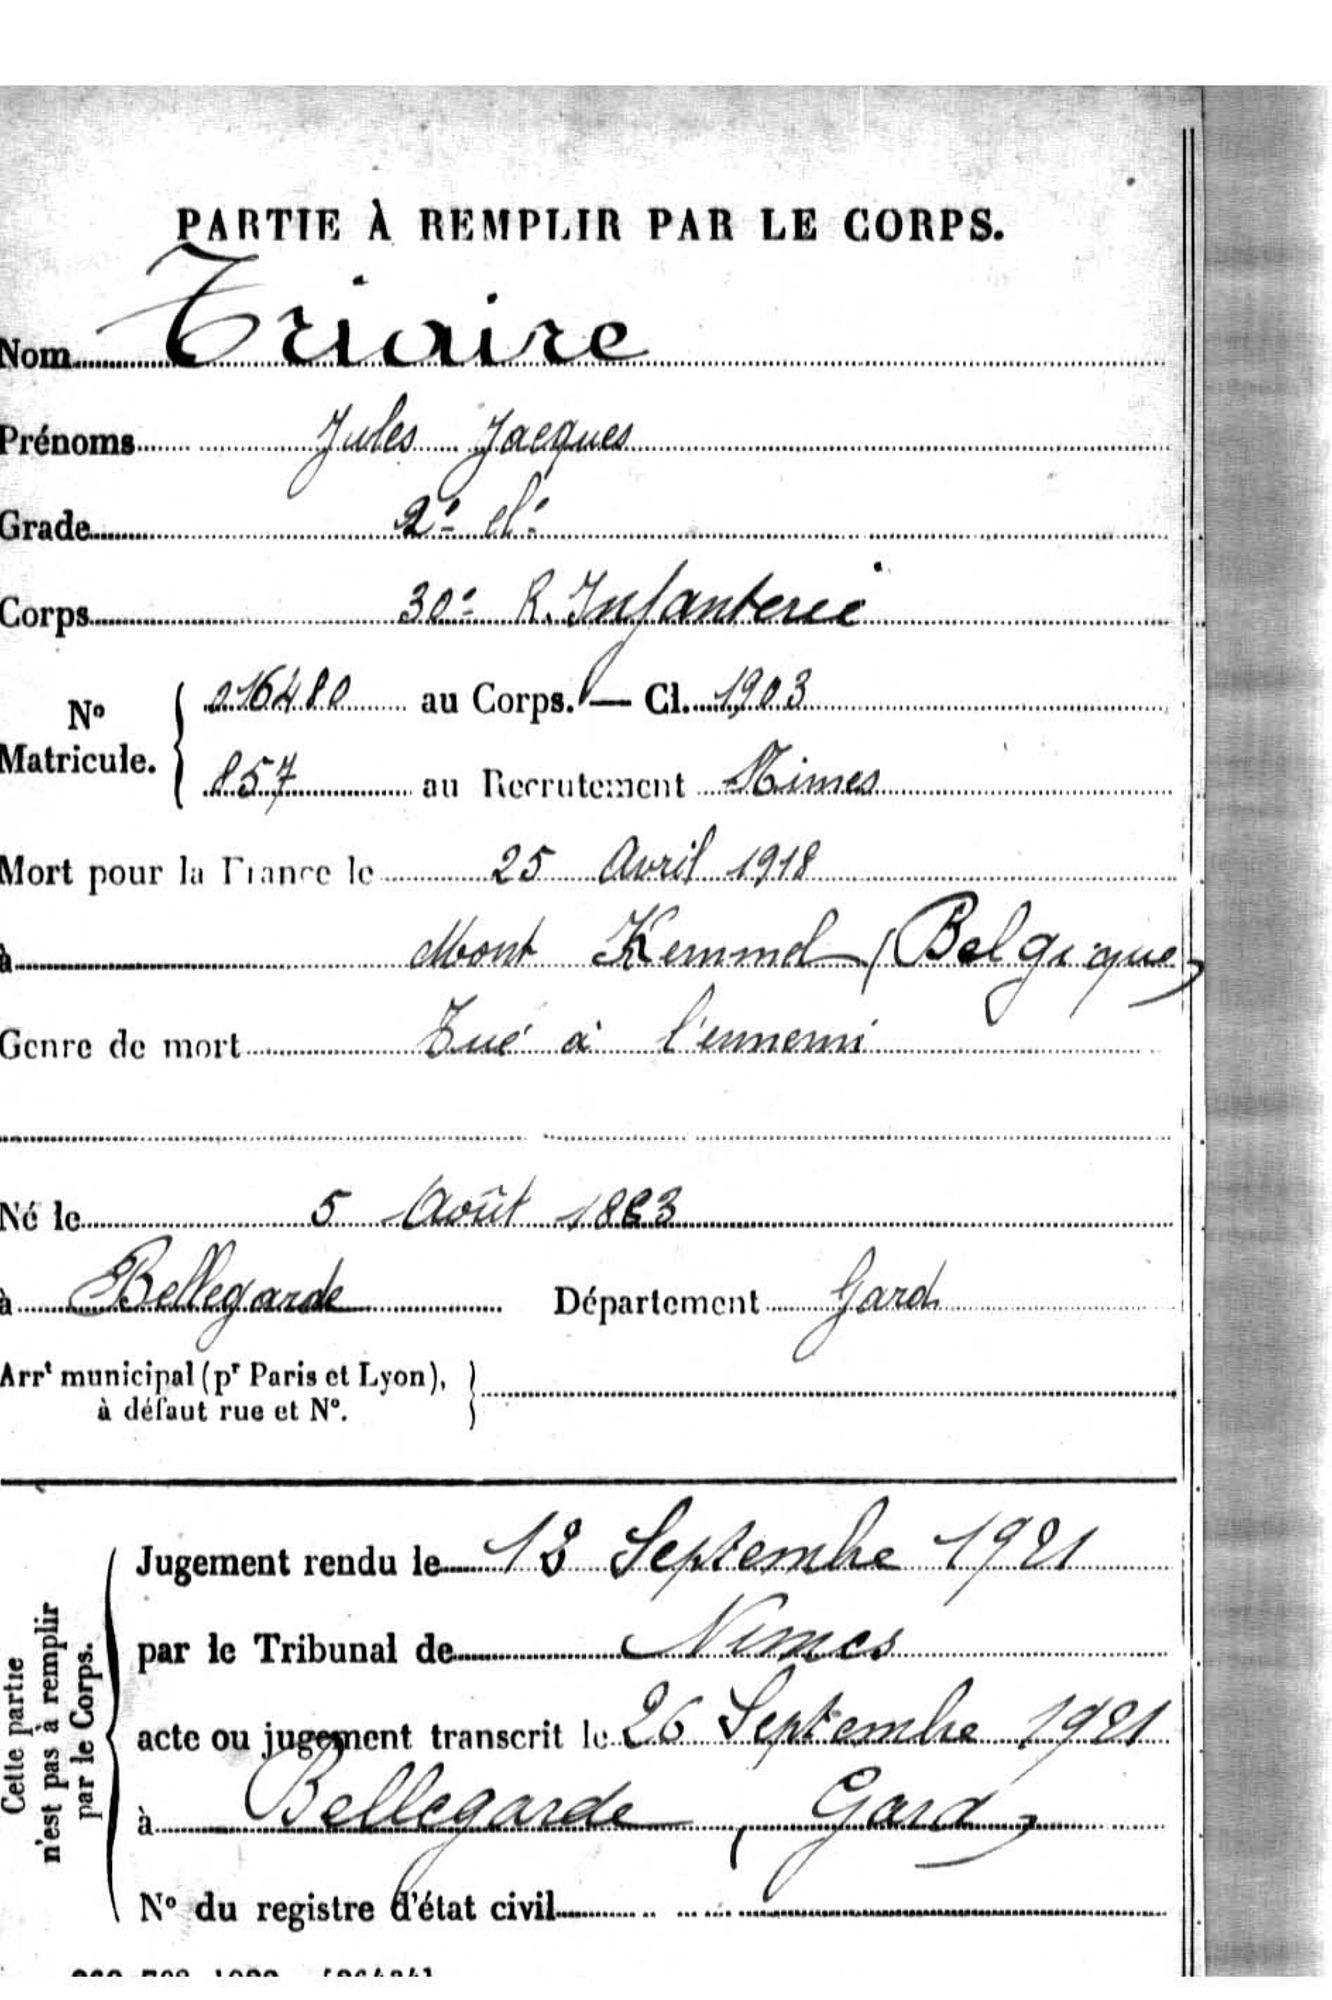 PARTIE À REMPLIR PAR LE CORPS.
Nom Triaire
Prénoms Jules Jacques
Grade 2e cl.
Corps 30e R. Infanterie
No Matricule. 016480 au Corps. — Cl. 1903
857 au Recrutement Nimes
Mort pour la France le 25 Avril 1918
à Mont Kemmel (Belgique)
Genre de mort Tué à l'ennemi
Né le 5 Août 1883
à Bellegarde Département Gard
Arrt municipal (pr Paris et Lyon),
à défaut rue et No.
Cette partie
n'est pas à remplir
par le Corps.
Jugement rendu le Septembre 1921
par le Tribunal de Nimes
acte ou jugement transcrit le 26 Septembre 1921
à Bellegarde, Gard
No du registre d'état civil